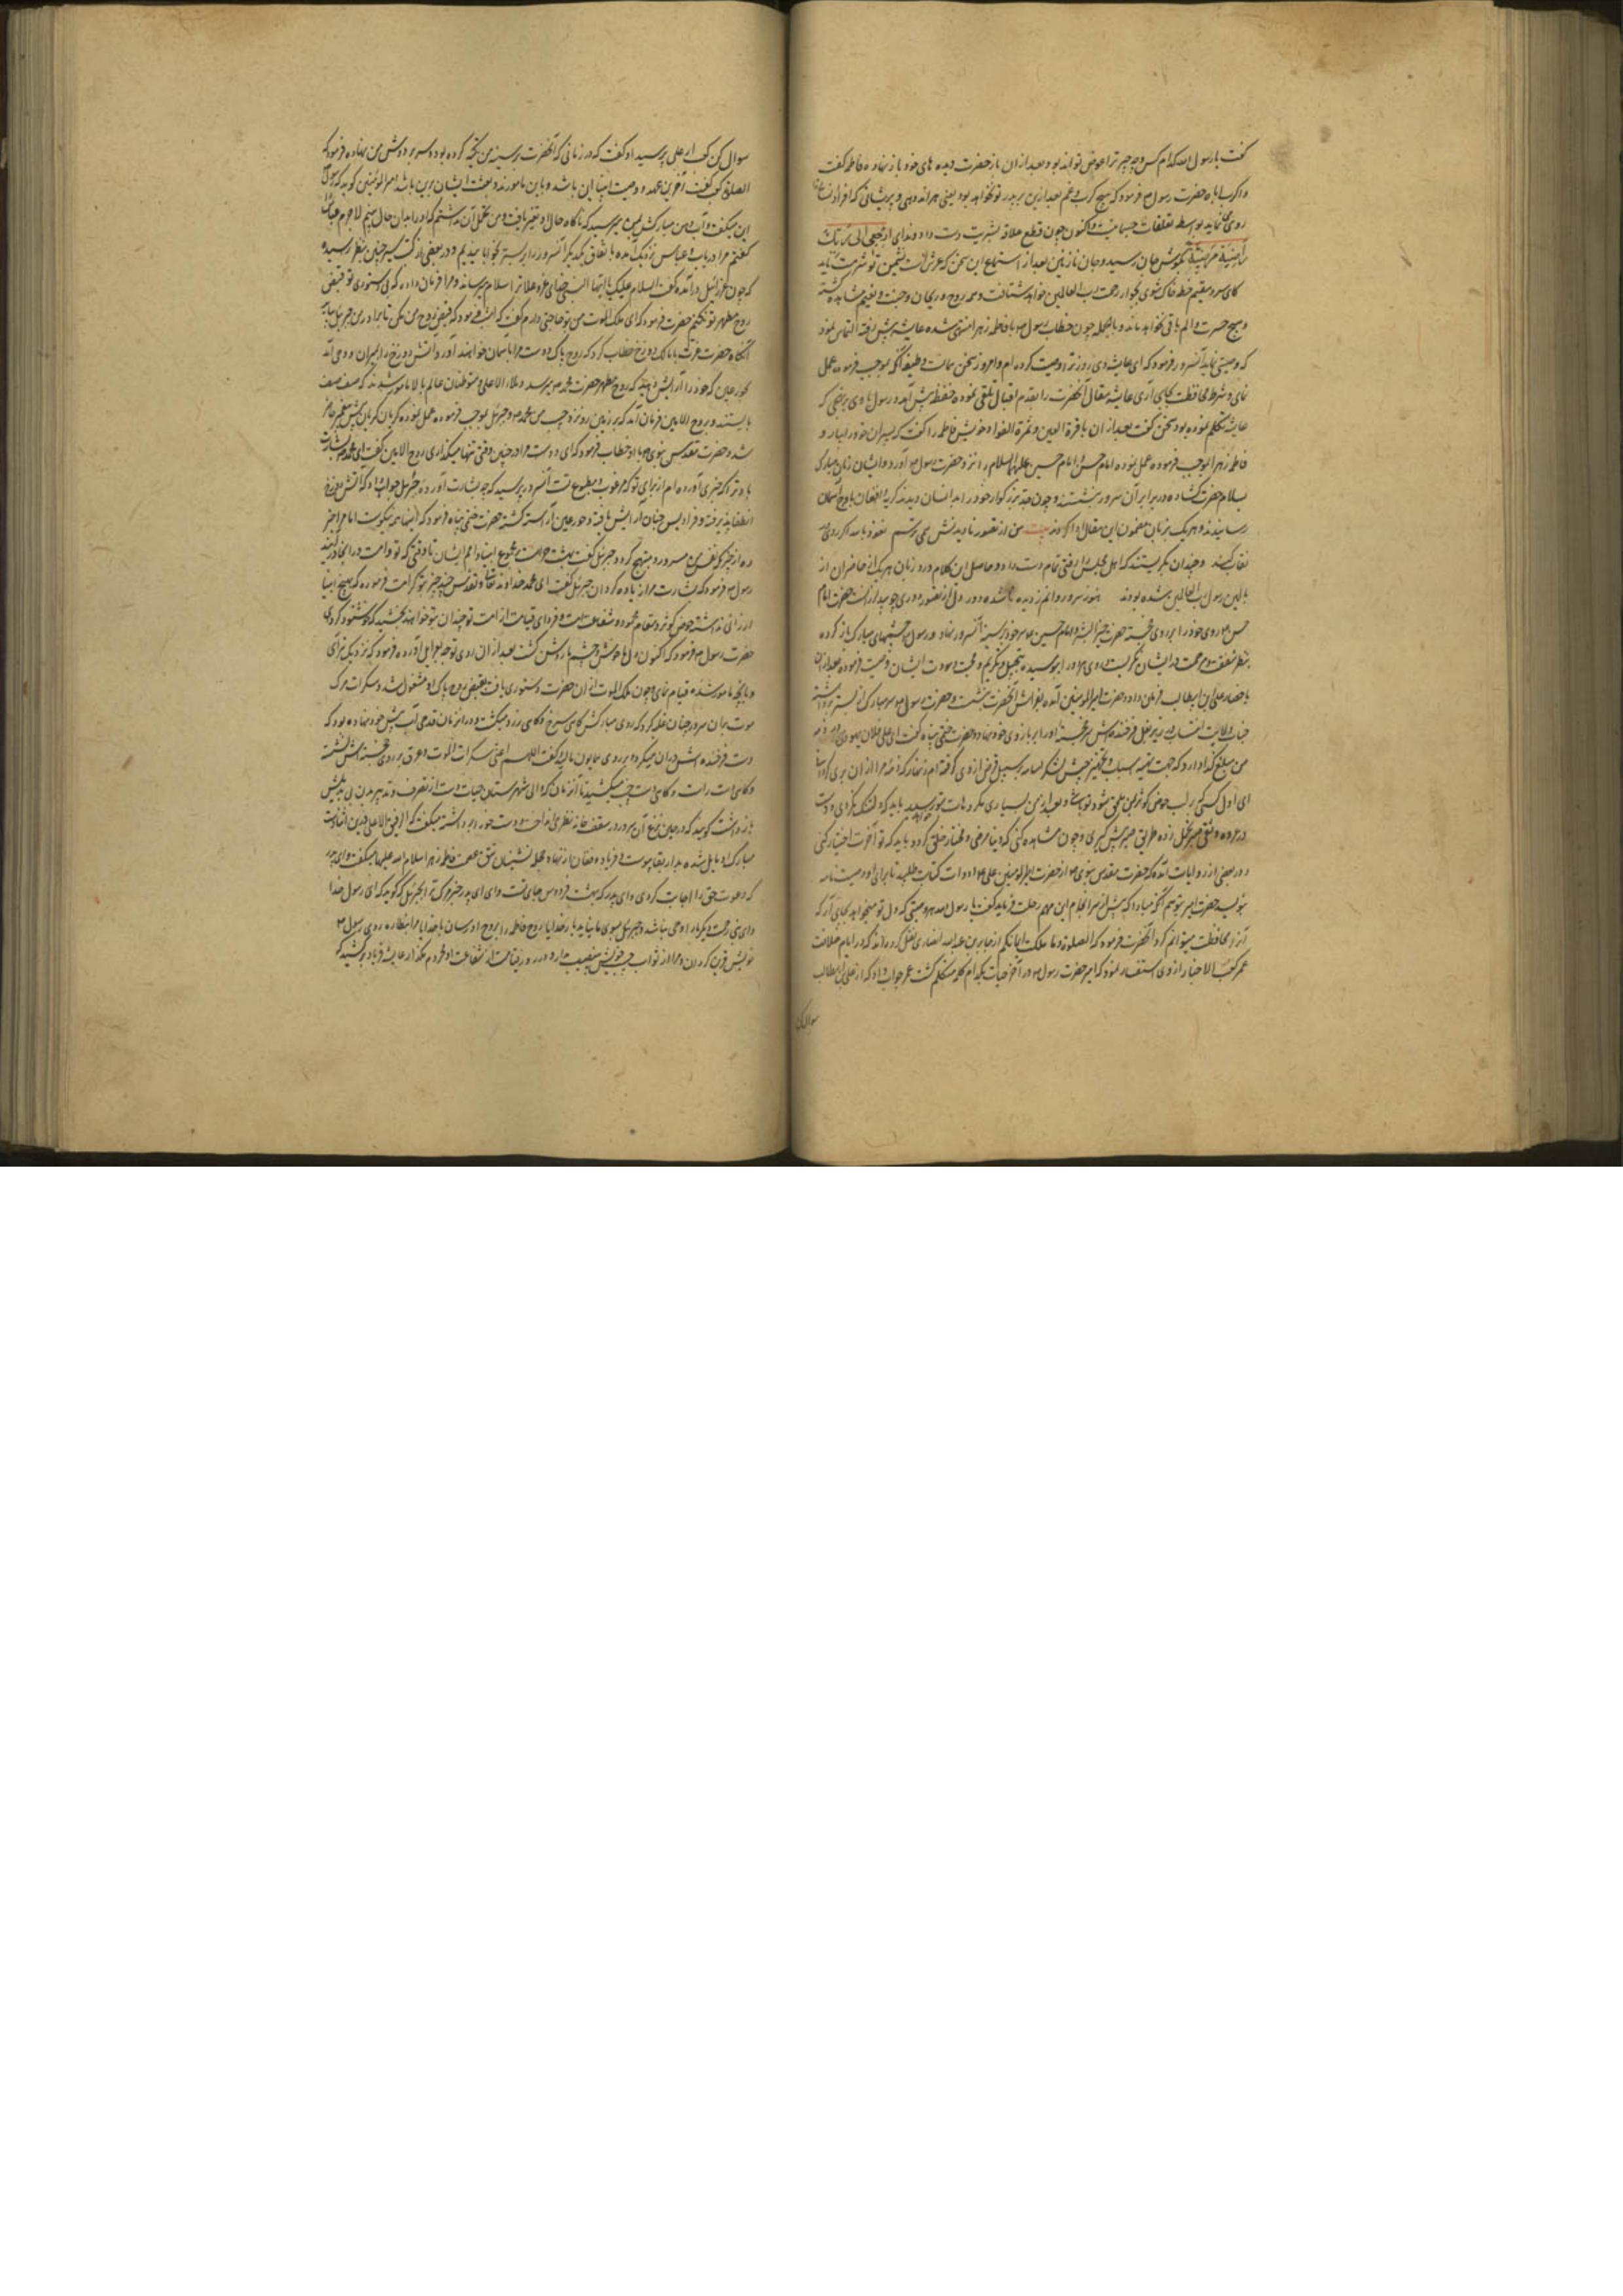 گفت یا رسول الله کدام کس و چه چیز ترا عوض تواند بود و بعد از ان باز حضرت دیده های خود باز نهاد فاطمه گفت
واکرب اباه حضرت رسول فرمود که هیچ کرب و غم بعد ازین بر پدر تو نخواهد بود یعنی هر اندوهی و پریشانی که افراد انسانرا
روی می نماید بواسطه تعلقات جسمانیست و اکنون چون قطع علاقه بشریت دست داد و ندای ارجعی الی ربک
راضیة مرضیة بگوش جان رسید و جان نازنین بعد از استماع این سخن که عرش است نشیمن تو شرمت ناید
کایی و مقیم خطه خاک شوی بجوار رحمت رب العالمین خواهد شتافت و روح و ریحان و جنت و نعیم مشاهده گشته
و هیچ حسرت و الم باقی نخواهد ماند و بالجمله چون خطاب رسول با فاطمه زهرا منتهی شده عایشه پیش رفته التماس نمود
که وصیتی نماید آنسرور فرمود که ای عایشه دی روز ترا وصیت کرده ام و امروز سخن همانست وظیفه آنکه بموجب فرموده عمل
نمای و شرط محافظت بجای آری عایشه مقال آنحضرت را بقدم اقبال تلقی نموده حفظه پیش آمد و رسول با وی برنجی که
عایشه تکلم نموده بود سخن گفت بعد از ان با قرة العین و ثمرة الفواد خویش فاطمه را گفت که پسران خود را بیار و
فاطمه زهرا بموجب فرموده عمل نموده امام حسن و امام حسین علیهما السلام را نزد حضرت رسول آورد و ایشان زبان مبارک
بسلام حضرت گشاده در برابر آن سرور بنشستند و چون جد بزرگوار خود را بدانسان دیدند گریه و افغان باوج آسمان
رسانیدند و هر یک بزبان مضمون این مقال ادا کردند بیت من از تصور نادیدنش همی ترسم نعوذ بالله اگر روی
نقاب کند و چندان بگریستند که اهل مجلس را رقتی تمام دست داد و حاصل این کلام ورد زبان هر یک از حاضران از
بالین رسول رب العالمین شده بودند هنوز سرو روانم ز دیده ناشده دور دل از تصور دوری چو بید لرزانست حضرت امام
حسن روی خود را بر روی خجسته حضرت خیر البشر و امام حسین سر خود بر سینه آنسرور نهاد و رسول چشمهای مبارک باز کرده
بنظر شفقت و مرحمت در ایشان نگریست و روی هر دو را بوسیده و بتبجیل و تکریم و محبت و مودت ایشان وصیت فرموده بعد از ان
باحضار علی ابن ابیطالب فرمان داد و حضرت امیر المومنین آمده بفراش آنحضرت بنشست و حضرت رسول سر مبارک از بستر برداشته
جناب ولایت انتساب در زیر بغل فرخنده اش سر خجسته او را بر بازوی خود نهاد و حضرت ختمی پناه گفت ای علی فلان یهودی در ذمه
من مبلغ کذا دارد که جهت تهیه اسباب و تجهیز جیش لشکر اسامه بر سبیل قرض از وی گرفته ام زنهار که ذمه مرا از ان بری گردانی
ای اول کسی که بر لب حوض کوثر بمن ملحق شود تو باشی و بعد از من بسیاری مکروهات بتو رسید باید که دلتنگ نگردی و دست
در عروه وثقی صبر و تحمل زده طریق صبر پیش گیری و چون مشاهده کنی که دنیا مرضی و مختار خلق گردد باید که تو آخرت اختیار کنی
و در بعضی از روایات آمده که حضرت مقدس نبوی از حضرت امیر المومنین علی دوات و کتاب طلبید تا برای او وصیت نامه
بنویسد حضرت امیر میگوید که مبادا که پیش از سرانجام این مهم رحلت فرماید گفت یا رسول الله هر وصیتی که دل تو میخواهد بجای آر که
آنرا محافظت میتوانم کرد آنحضرت فرمود که الصلوة و ما ملکت ایمانکم از جابر بن عبد الله انصاری نقل کرده اند که در ایام خلافت
عمر کعب الاحبار از وی استفسار نمود که امیر حضرت رسول در آخر حیات بکدام کلمه متکلم گشت عمر جواب داد که از علی بن ابیطالب
سوال کن
سوال کن کعب از علی پرسید او گفت که در زمانی که آنحضرت بر سینه من تکیه کرده بود و سر بر دوش من نهاده فرمود که
الصلوة کعب گفت آخرین عهد و وصیت انبیا این باشد و باین مامورند و بعثت ایشان برین باشد امیر المومنین گوید که رسول
این میگفت و آب دهن مبارکش بمن میرسید که ناگاه حال او تغیر یافت و من تحمل آن نداشتم که او را بدان حال بینم لاجرم عباس را
گفتم مرا دریاب و عباس نزدیک آمده باتفاق یکدیگر آنسرور را بر بستر خوابانیدیم و در بعضی از کتب سیر چنین بنظر رسیده
که چون عزرائیل درآمده گفت السلام علیک ایها النبی خدای عز و علا ترا سلام میرساند و مرا فرمان داده که بی دستوری تو قبض
روح مطهر تو نکنم حضرت فرمود که ای ملک الموت من بتو حاجتی دارم گفت که آن چیست فرمود که قبض روح من نکنی تا برادر من جبرئیل بیاید
آنگاه حضرت عزت با مالک دوزخ خطاب کرد که روح پاک دوست مرا باسمان خواهند آورد آتش دوزخ را بمیران و وحی آمد
بحور عین که خود را آرایش دهید که روح مطهر حضرت محمد میرسد و ملاء الاعلی و متوطنان عالم بالا مامور شدند که صف صف
بایستند و بروح الامین فرمان آمد که بر زمین رو نزد حبیب من محمد و جبرئیل بموجب فرموده عمل نموده گریان گریان پیش پیغمبر حاضر
شد و حضرت مقدس نبوی باو خطاب فرمود که ای دوست مرا در چنین وقتی تنها میگذاری روح الامین گفت ای محمد بشارت
باد ترا که خبری آورده ام از برای تو که مرغوب و مطبوع تست آنسرور پرسید که چه بشارت آورده جبرئیل جواب داد که آتش دوزخ
انطفا پذیرفته و فرادیس جنان آرایش یافته و حور عین آراسته گشته حضرت ختمی پناه فرمود که اینها همه نیکوست اما مرا خبر
ده از چیزی که نفس من مسرور و مبتهج گردد جبرئیل گفت بهشت حرامست بر جمیع انبیا و امم ایشان تا وقتی که تو و امت تو در انجا در آیند
رسول فرمود که بشارت مرا زیاده گردان جبرئیل گفت ای محمد خداوند تعالی و تقدس چند چیز بتو کرامت فرموده که بهیچ انبیا
ارزانی نداشته حوض کوثر و مقام محمود و شفاعت امت و فردای قیامت از امت تو چندان بتو خواهند بخشید که خوشنود گردی
حضرت رسول فرمود که اکنون دل ما خوش و چشم ما روشن گشت بعد از ان روی توجه بعزرائیل آورده فرمود که نزدیک تر آی
و بانچه مامور شده قیام نمای و چون ملک الموت از ان حضرت دستوری یافت بقبض روح پاک او مشغول شد و سکرات مرگ
موت بر ان سرور چنان غلبه کرد که روی مبارکش گاهی سرخ و گاهی زرد میگشت و در ان زمان قدحی آب پیش خود نهاده بود که
دست فرخنده اش در ان میکرد و بر روی همایون مالیده میگفت اللهم اعنی علی سکرات الموت و عرق بر روی خجسته اش نشسته
و گاهی دست راست و گاهی دست چپ میکشید تا آنزمان که والی شهرستان حیات دست از تصرف و تدبیر بدن بی بدیلش
باز داشت گویند که در حین نزع آن سرور در سقف خانه نظری انداخت و دست خود را برداشته میگفت که الرفیق الاعلی درین اثنا دست
مبارک او مایل شده بدار بقا پیوست و فریاد و فغان از نهاد حجله نشینان تتق عصمت فاطمه زهرا سلام الله علیها میگفت وای پدر
که دعوت حق را اجابت کردی و وای پدر که بهشت فردوس جای تست وای ای پدر خبر مرگ ترا بجبرئیل که گوید که ای رسول خدا
وای نبی رحمت دیگر بار وحی نباشد و جبرئیل بسوی ما نیاید بار خدایا روح فاطمه را بروح او رسان بار خدایا مرا بنظاره روی رسول
خویش قرین گردان و مرا از ثواب حبیب خویش بی نصیب مدار و در روز قیامت از شفاعت او محروم مگذار عایشه فریاد برکشید که